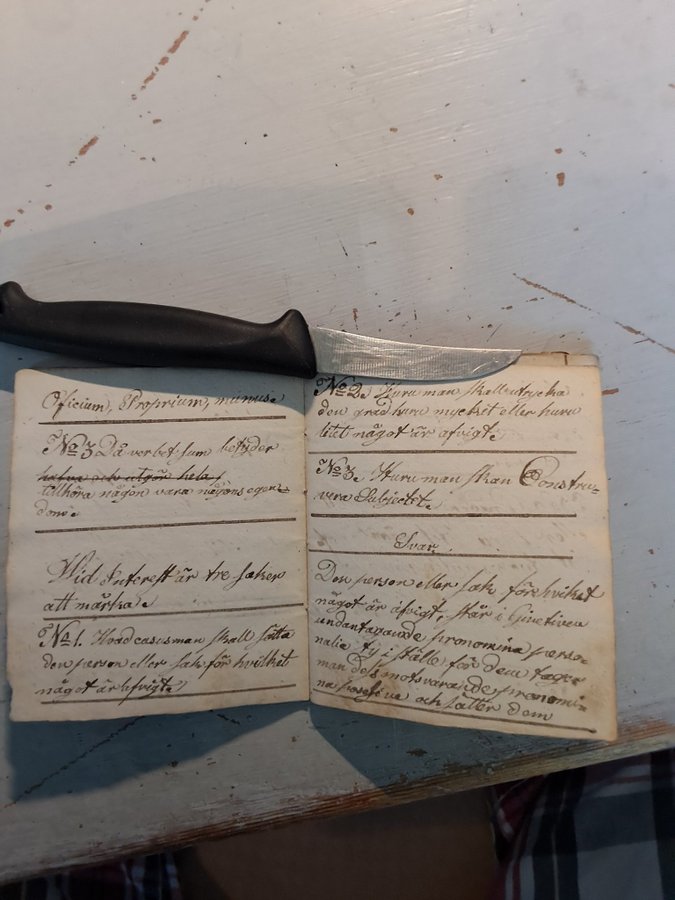 Officium, Proprium, munus.
No 3. Då verbet sum betyder
hafva och utgöra hela
tillhöra någon vara någons egen-
dom.
Wid Interest är tre saker
att märka.
No 1. Hvad casus man skall sätta
den person eller sak för hvilket
något är afvigt.
No 2. Huru man skall uttrycka
den grad huru mycket eller huru
litet något är afvigt.
No 3. Huru man skan Constru-
vera Subjectet.
Svar.
Den person eller sak före hvilket
något är afvigt, står i Genetiven
undantagande pronomina perso-
nalia ty i ställe för dem tager
man dess motsvarande pronomi-
na posesiva och sätter dem